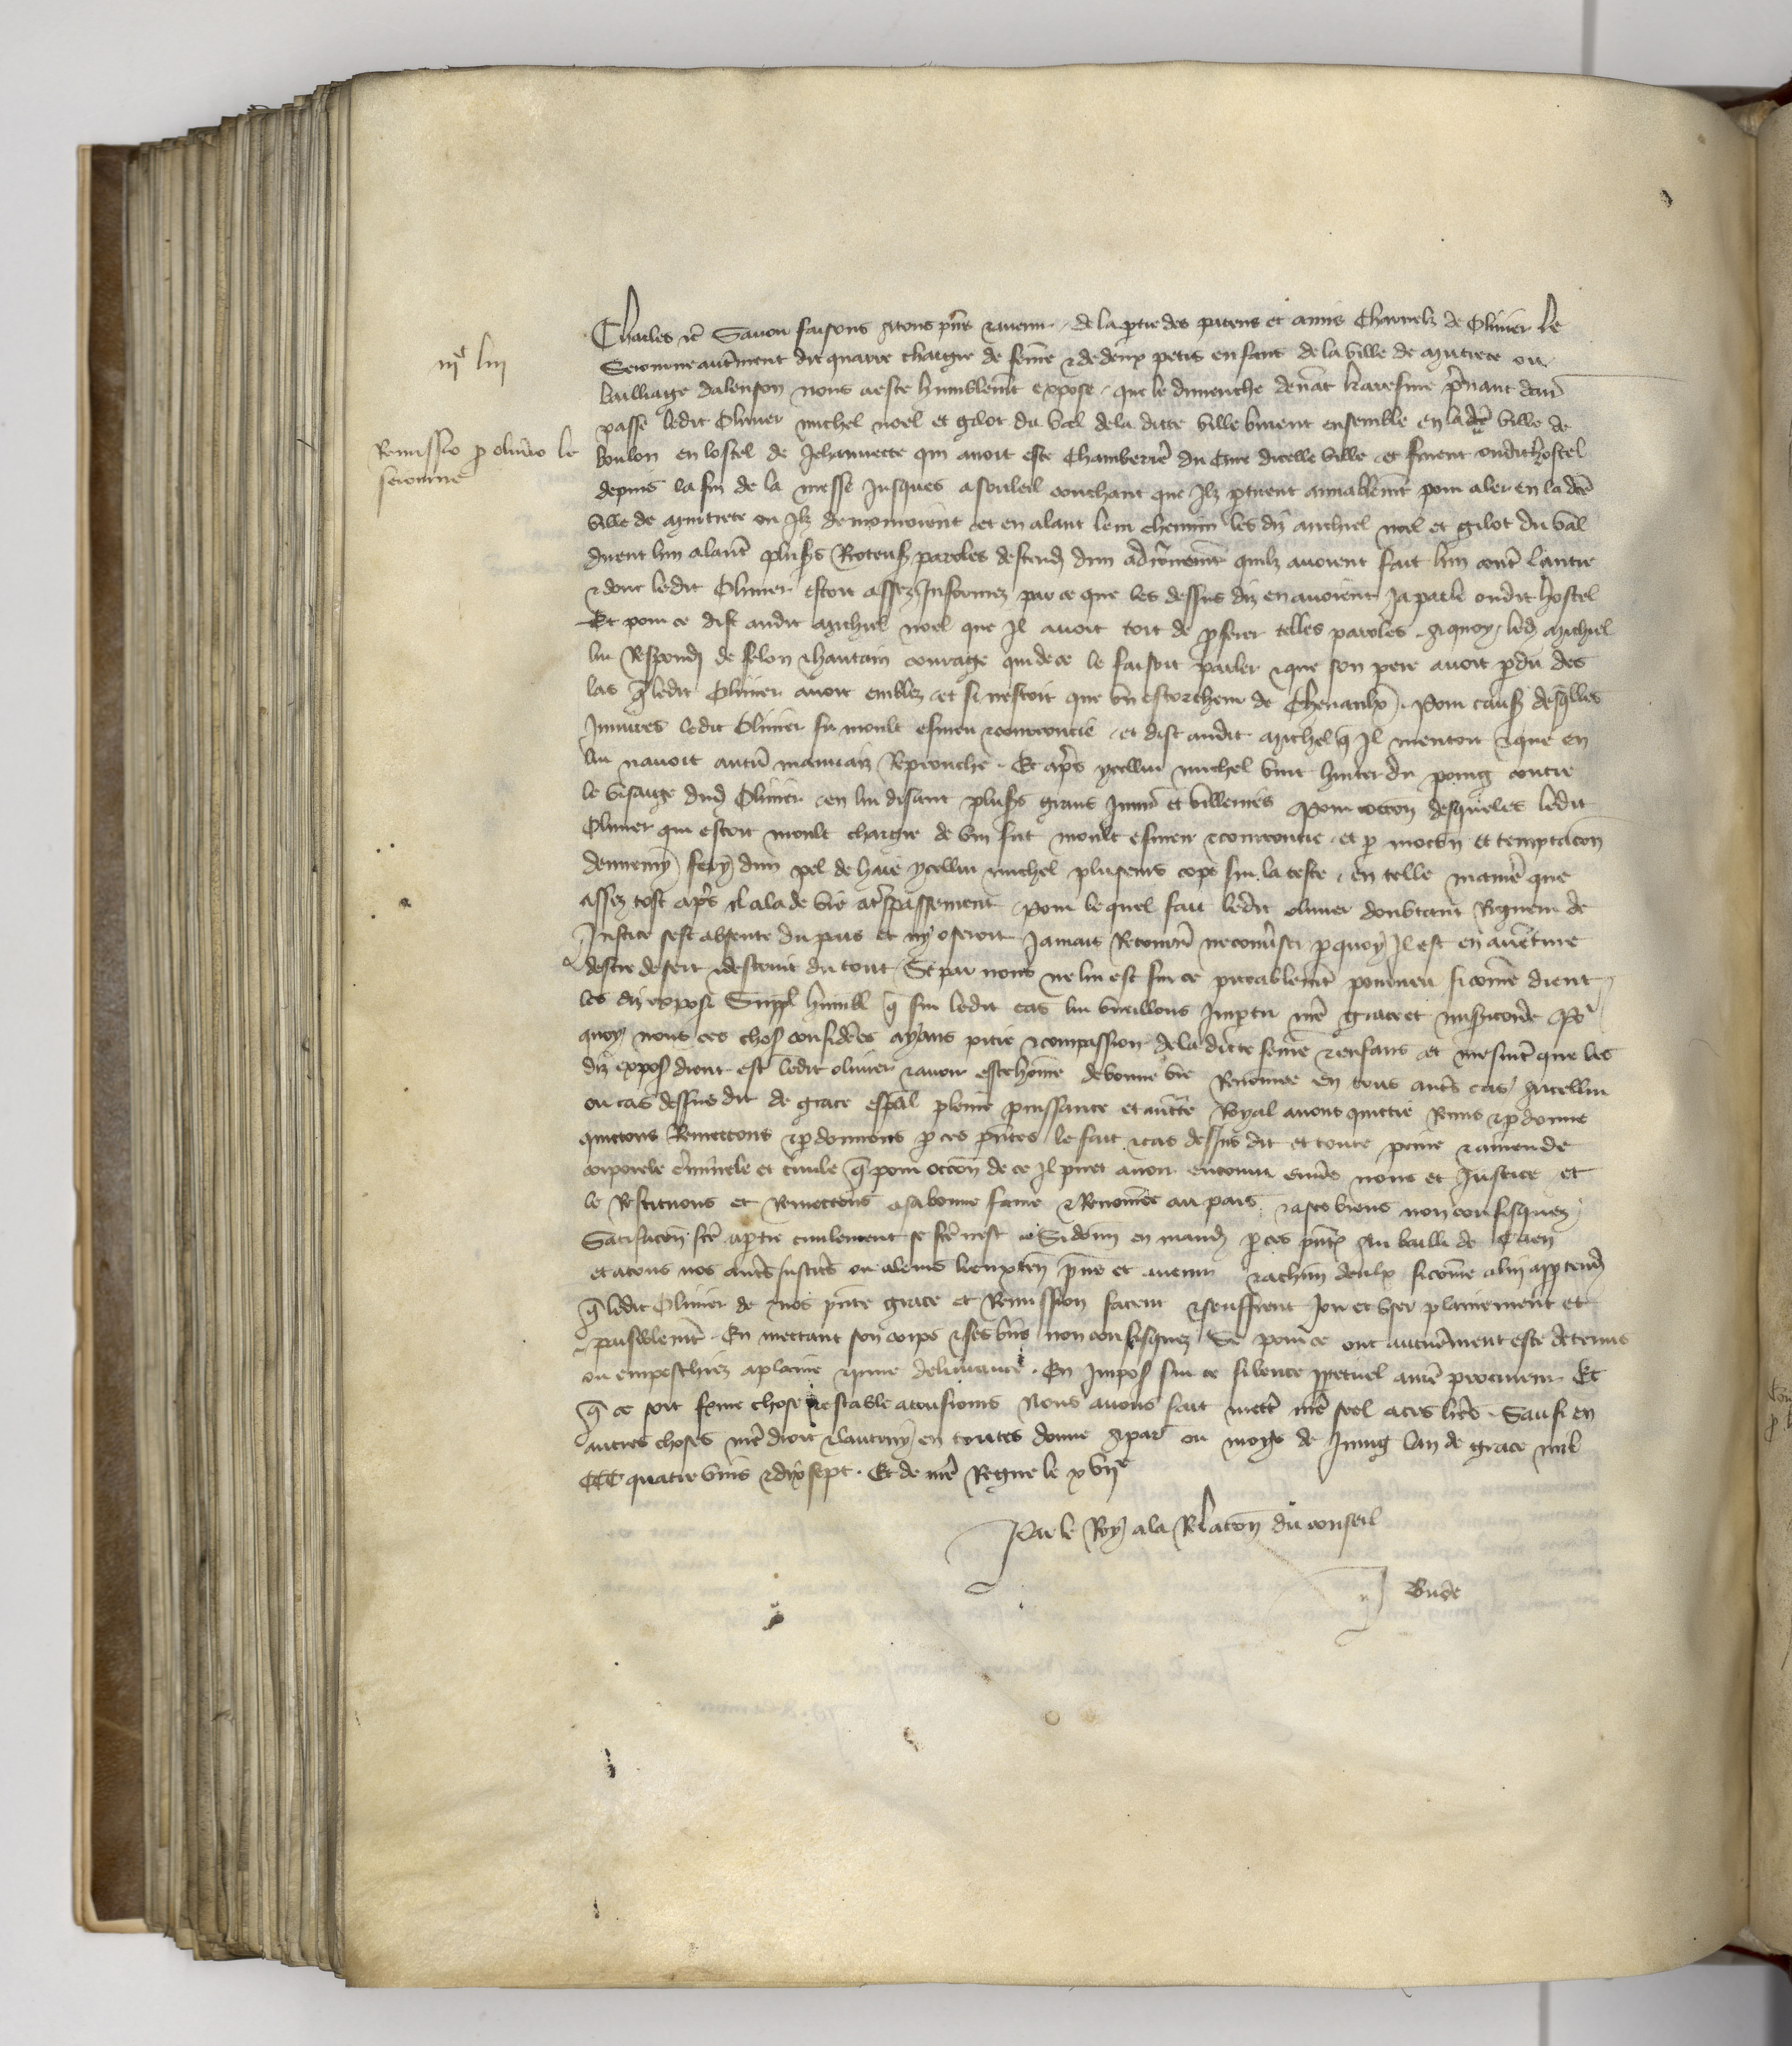 Charles etc Savoir faisons a tous pñs et avenir de la ptie des parens et amis charnelz de Olivier le
iijᶜ liij
Seronne autrement dit quatre chargie de feme et de deux petis enfans de la ville de ou
bailliage dalençon nous a este humblemt expose que le dimenche devat karesme pñant dam̃
passe ledit Olivier michel noel et gilot du val de la ditte ville burent ensemble en la dcẽ ville de
Remissio p oliũio le
seronne
boulon en lostel de Jehannette qui avoit este chamberiẽ du cure dicelle ville et furent oudit hostel
depuis la fin de la messe jusques a souleil couchant que Ilz ptirent amiablemt pour aler en la dcẽ
ville de ou Ilz demouroient et en alant leur chemin les diz michiel noel et gilot du val
eurent lun a lautẽ plusrs paroles dun adiournemt quilz avoient fait lun contẽ lautre
et dont ledit Olivier estoit assez Informez par ce que les dessus diz en avoient Ja parle oudit hostel
Et pour ce dist audit michiel noel que Il avoit tort de pferer telles paroles Aquoy led michiel
lui Respondi de felon et hautain courage qui de ce le faisoit parler et que son pere avoit pdu des
las q̃ ledit Olivier avoit emblez et si nestoit que un escorcheur de chevaulx Pour cause desqlles
Iniures ledit Olivier fu moult esmeu et courroucie et dist audit michel q̃ Il mentoit et que en
lui navoit aucũ mauvaiz Reprouche Et apñs ycellui michel vint hurter du poing contre
le visaige dud Olivier en lui disant plusrs grans Iniurẽ et villenies Pour occon desqueles ledit
Olivier qui estoit moult chargie de vin fut moult esmeu et courroucie et p mocõn et temptacõn
dennemy fery dun pel de haie ycellui michel plusieurs cops sur la teste en telle maniẽ que
assez tost apñs il ala de vie a trespassement Pour lequel fait ledit olivier doubtant Rigueur de
Justice sest absente du pais et ny oseroit Jamais Retournẽ ne conversẽr p quoy Il est en aventure
destre desert et destruit du tout Se par nous ne lui est sur ce piteablemt pourveu si come dient
les diz exposs Suppl humbl q̃ sur ledit cas lui vueillons Impartir nrẽ grace et misericorde Pour
quoy nous ces choses considẽes ayans pitie et compassion de la dicte feme et enfans et mesmt que les
diz exposs dient est ledit olivier et avoir este home de bonne vie Renomee en tous autẽs cas A icellui
ou cas dessus dit de grace esp̃al pleine puissance et auctẽ Royal avons quictie Remis et pdonne
quictons Remettons et pdonnons p ces pñtes le fait et cas dessus dit et toute peine et amende
corporele criminele et civile q̃ pour occon de ce Il puet avoir encouru envẽs nous et Justice et
le Restituons et Remettons a sa bonne fame et Renomee au pais et a ses biens non confisquez
Satisfacõn fcẽ a ptie civilement se fcẽ nest Si donn en mand p ces pñtz Au bailli de Caen
et a tous nos autẽs justicẽs ou a leurs lieuxten pñs et avenir et a chun deulx si come a lui apptend
q̃ ledit Olivier de nos pñte grace et Remission facent et seuffrent Joir et user plainement et
paisiblemt En mettant son corps et ses bñs non confisquez Se pour ce ont aucunement este detenus
ou empeschiez a plaine et mie delivrance En Impos sur ce silence ppetuel a nrẽ procureur Et
q̃ ce soit ferme chose et estable a tousiours Nous avons fait mettẽ nrẽ seel a ces lrẽs Sauf en
autres choses nrẽ droit et lautruy en toutes donne A par ou moys de Juing lan de grace mil
CCC quatre vins et dix sept Et de nrẽ Regne le xviiᵉ
Par le Roy a la Relacõn du conseil
Bude